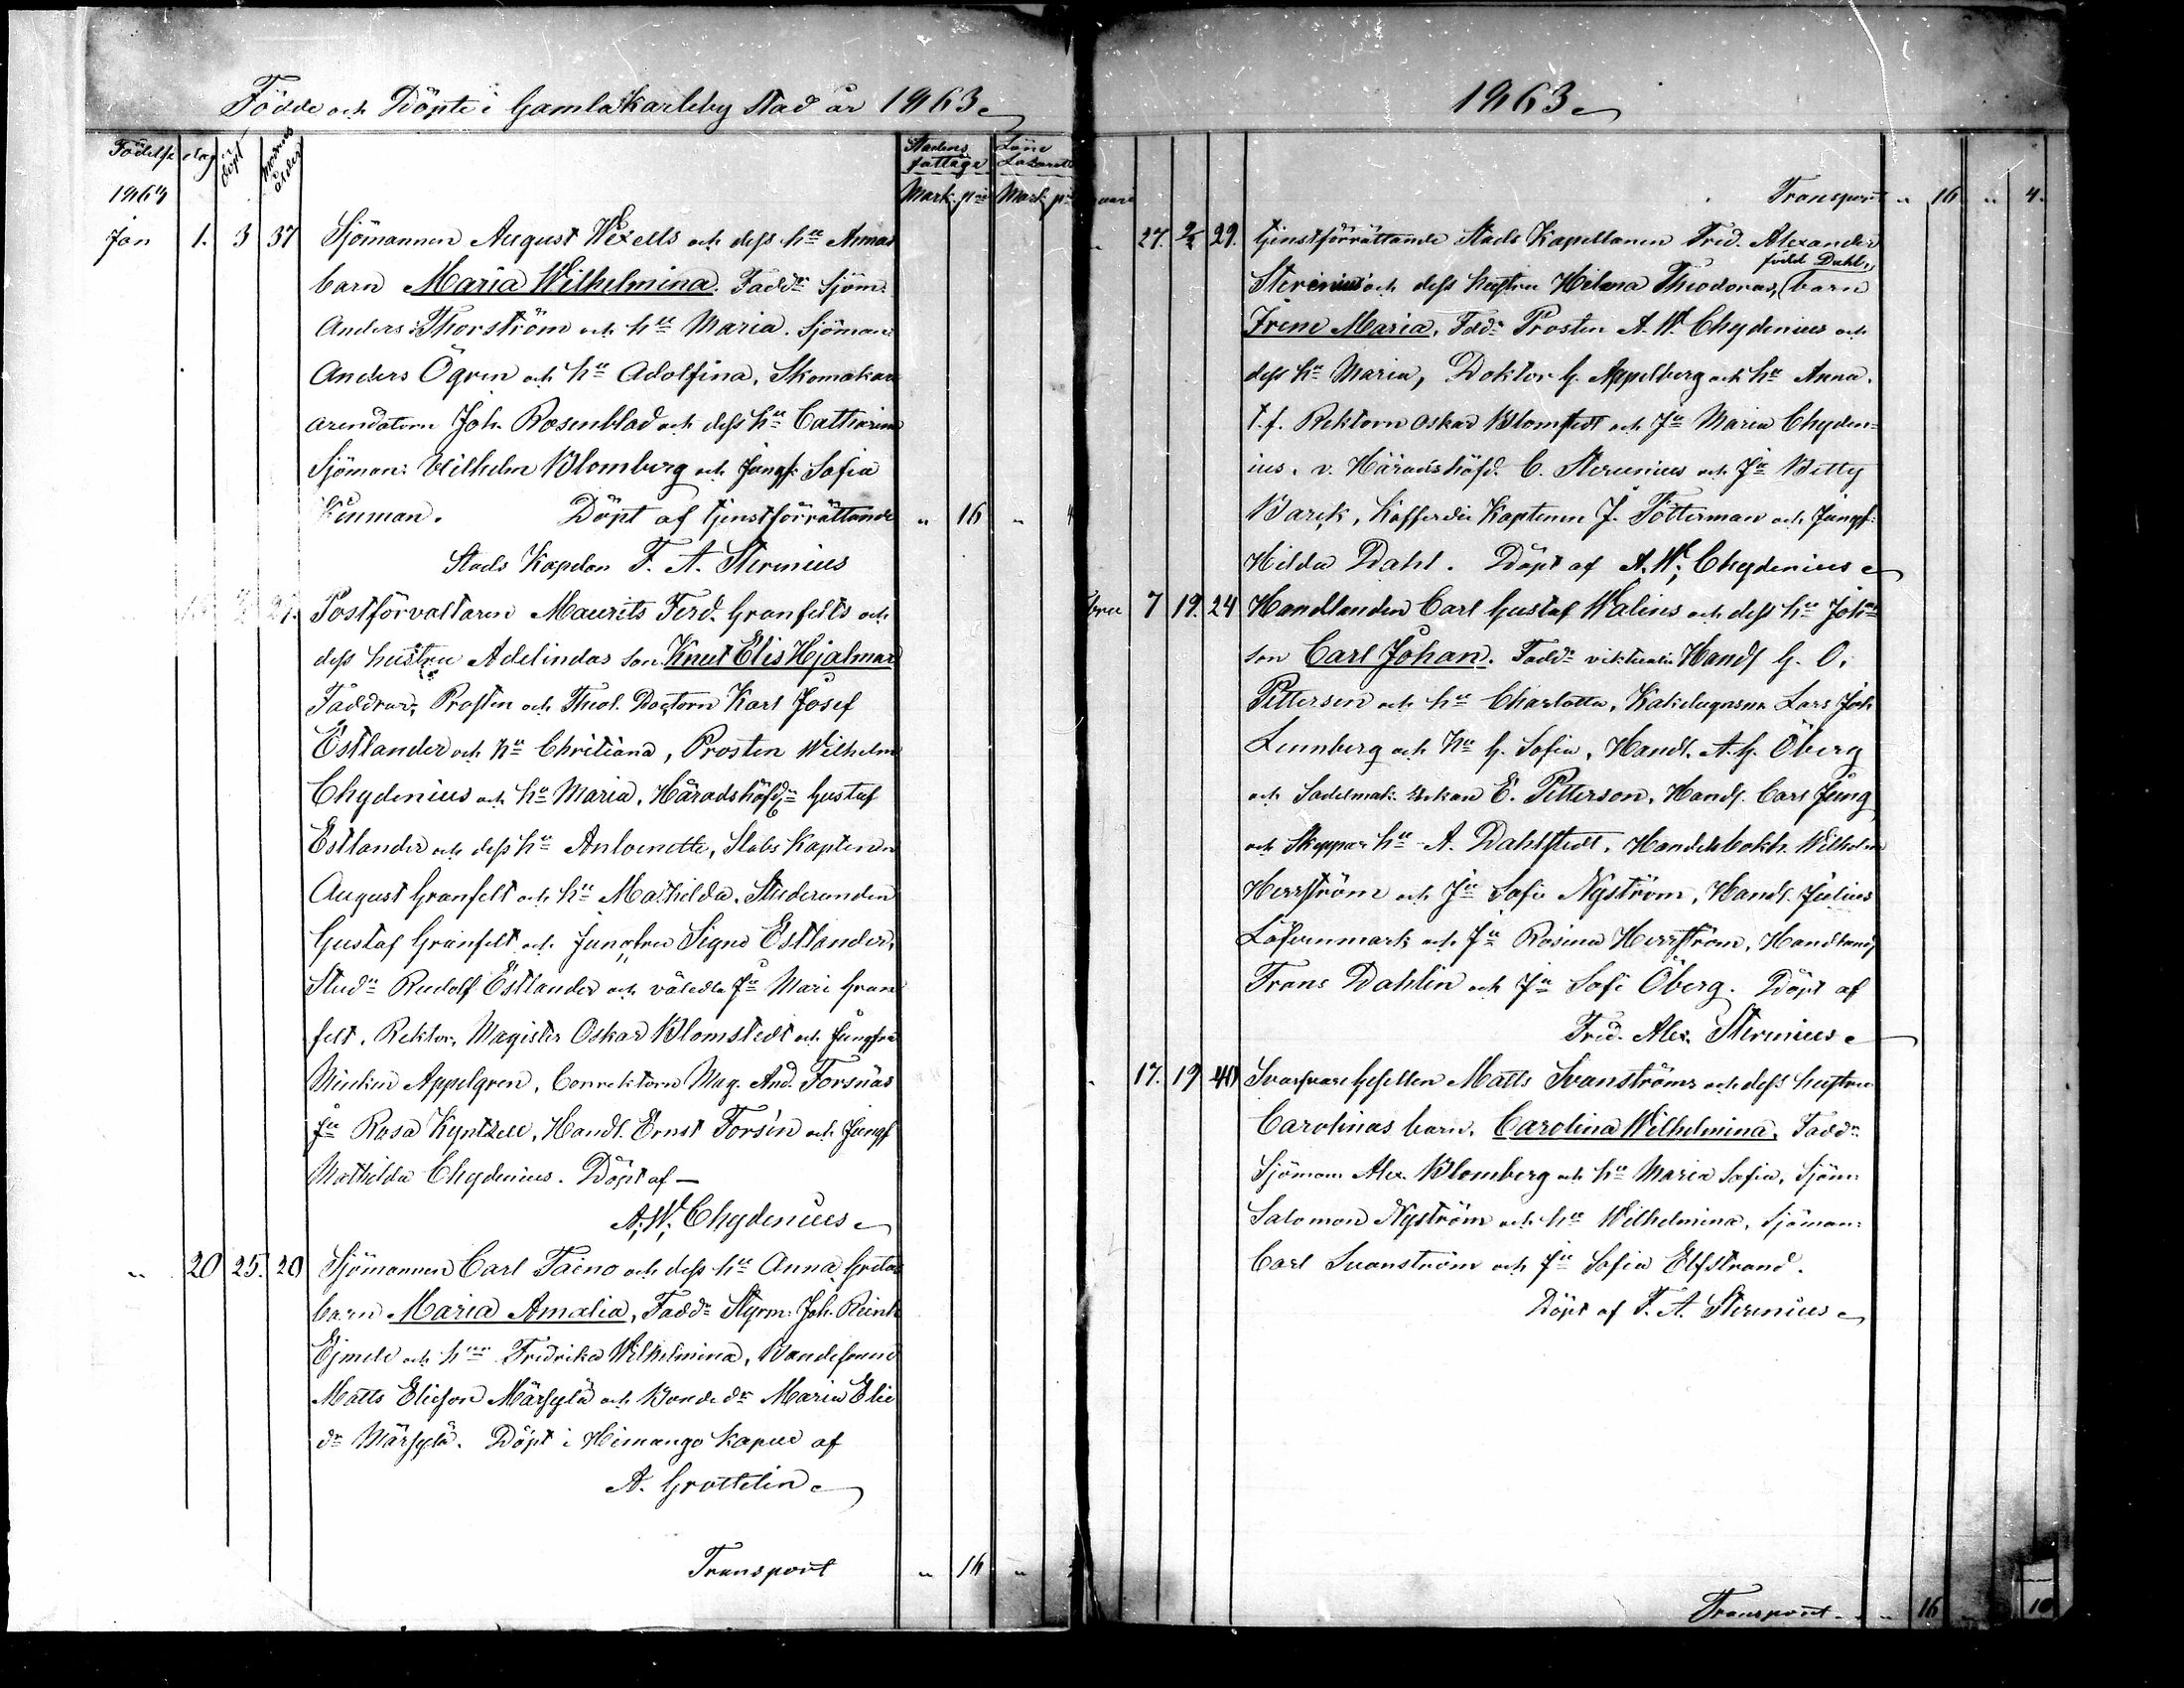 Födde och Döpte i Gamlakarleby Stad år 1863
Födelse dag döpt modrens ålder
Stadens fattige Läne Lazarett
1863 Mark p:ni Mark p:
Jan 1. 3 37 Sjömannen August Wexells och dess h:u Annas
barn Maria Wilhelmina. Fadd: Sjöm:
Anders Thorström och h:u Maria. Sjöman:
Anders Ögren och h:u Adolfina, Skomakare
arendatorn Joh. Rosenblad och dess h:u Catharina
Sjöman: Wilhelm Blomberg och Jungf: Sofia
Döpt af tjenstförrättande " 16 " 4
Stads Kapelan F. A. Sterenius
21. Postförvaltaren Maurits Ferd. Granfelts och
dess hustru Adelindas son Knut Elis Hjalmar
Faddrar, Prosten och Theol. Doctorn Karl Josef
Estlander och h:u Christiana, Prosten Wilhelm
Chydenius och h:u Maria. Häradshöfd: Gustaf
Estlander och dess h:u Antoinette, Stabs Kaptenen
August Granfelt och h:u Mathilda. Studeranden
Gustaf Granfelt och Jungfru Signe Estlander,
Stud: Rudolf Estlander och väledia J:u Mari Gran
felt. Rektor, Magister Oskar Blomstedt och Jungfru
Appelgren, Conrektorn Mag. And. Forsnäs
J:u Rosa Kyntzell, Handl. Ernst Forsén och Jungf
Mathilda Chydenius. Döpt af —
A. W. Chydenius
" 20 25. 20 Sjömannen Carl Taino och dess h:u Anna Gretas
barn Maria Amalia, Fadd: Styrm: Joh. Reinh
och h:u Fredrika Wilhelmina, Bondesonen
Matts Eliesson Märsylä och Bonde d:r Maria Elie
d:r Märsylä. Döpt i Himango Kapell af
A. Grottelin
Transport " 16 "
1863
Transport " 16 " 4.
" 27. 2/2 29. tjenstförrättande Stads Kapellanen Fred. Alexander
född Dahl,
Sterenius och dess hustru Hilma Theodoras, barn
Irene Maria, Fadd: Prosten A. W. Chydenius och
dess h:u Maria, Doktor G. Appelberg och h:u Anna.
t.f. Rektorn Oskar Blomstedt och J:u Maria Chyden=
ius. v. Häradshöfd. C. Sterenius och J:u Betty
Barck, Kofferdie Kaptenen J. Tötterman och Jungf:
Hilda Dahl. Döpt af A. W. Chydenius
7 19. 24 Handlanden Carl Gustaf Walins och dess h:u Joh:as
son Carl Johan. Fadd: viktualie Handl G. O.
Pettersen och h:u Charlotta, Kakelugnsm. Lars Joh
Lennberg och h:u G. Sofia, Handl. A. G. Öberg
och Sadelmak. Enkan E. Petterson, Handl. Carl Jung
och Skeppar h:u A. Dahlstedt. Handelsbokh. Wilhelm
Herrström och J:u Sofie Nyström, Handl. Julius
och J:u Rosina Herrström, Handland
Frans Dahlin och J:u Sofi Öberg. Döpt af
Fred. Alex. Sterenius
" 17. 19 40 Svarfvare Gesellen Matts Svanströms och dess hustru
Carolinas barn, Carolina Wilhelmina, Fadd:r
Sjöman Alex. Blomberg och h:u Maria Sofia, Sjöm:
Salomon Nyström och h:u Wilhelmina, Sjöman:
Carl Svanström och J:u Sofia Elfstrand.
Döpt af F. A. Sterenius
Transport " 16 " 10